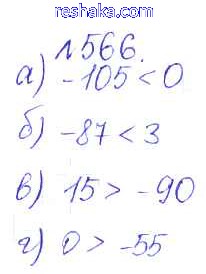 reshaka.com
№566.
а) -105 < 0
б) -87 < 3
в) 15 > -90
г) 0 > -55